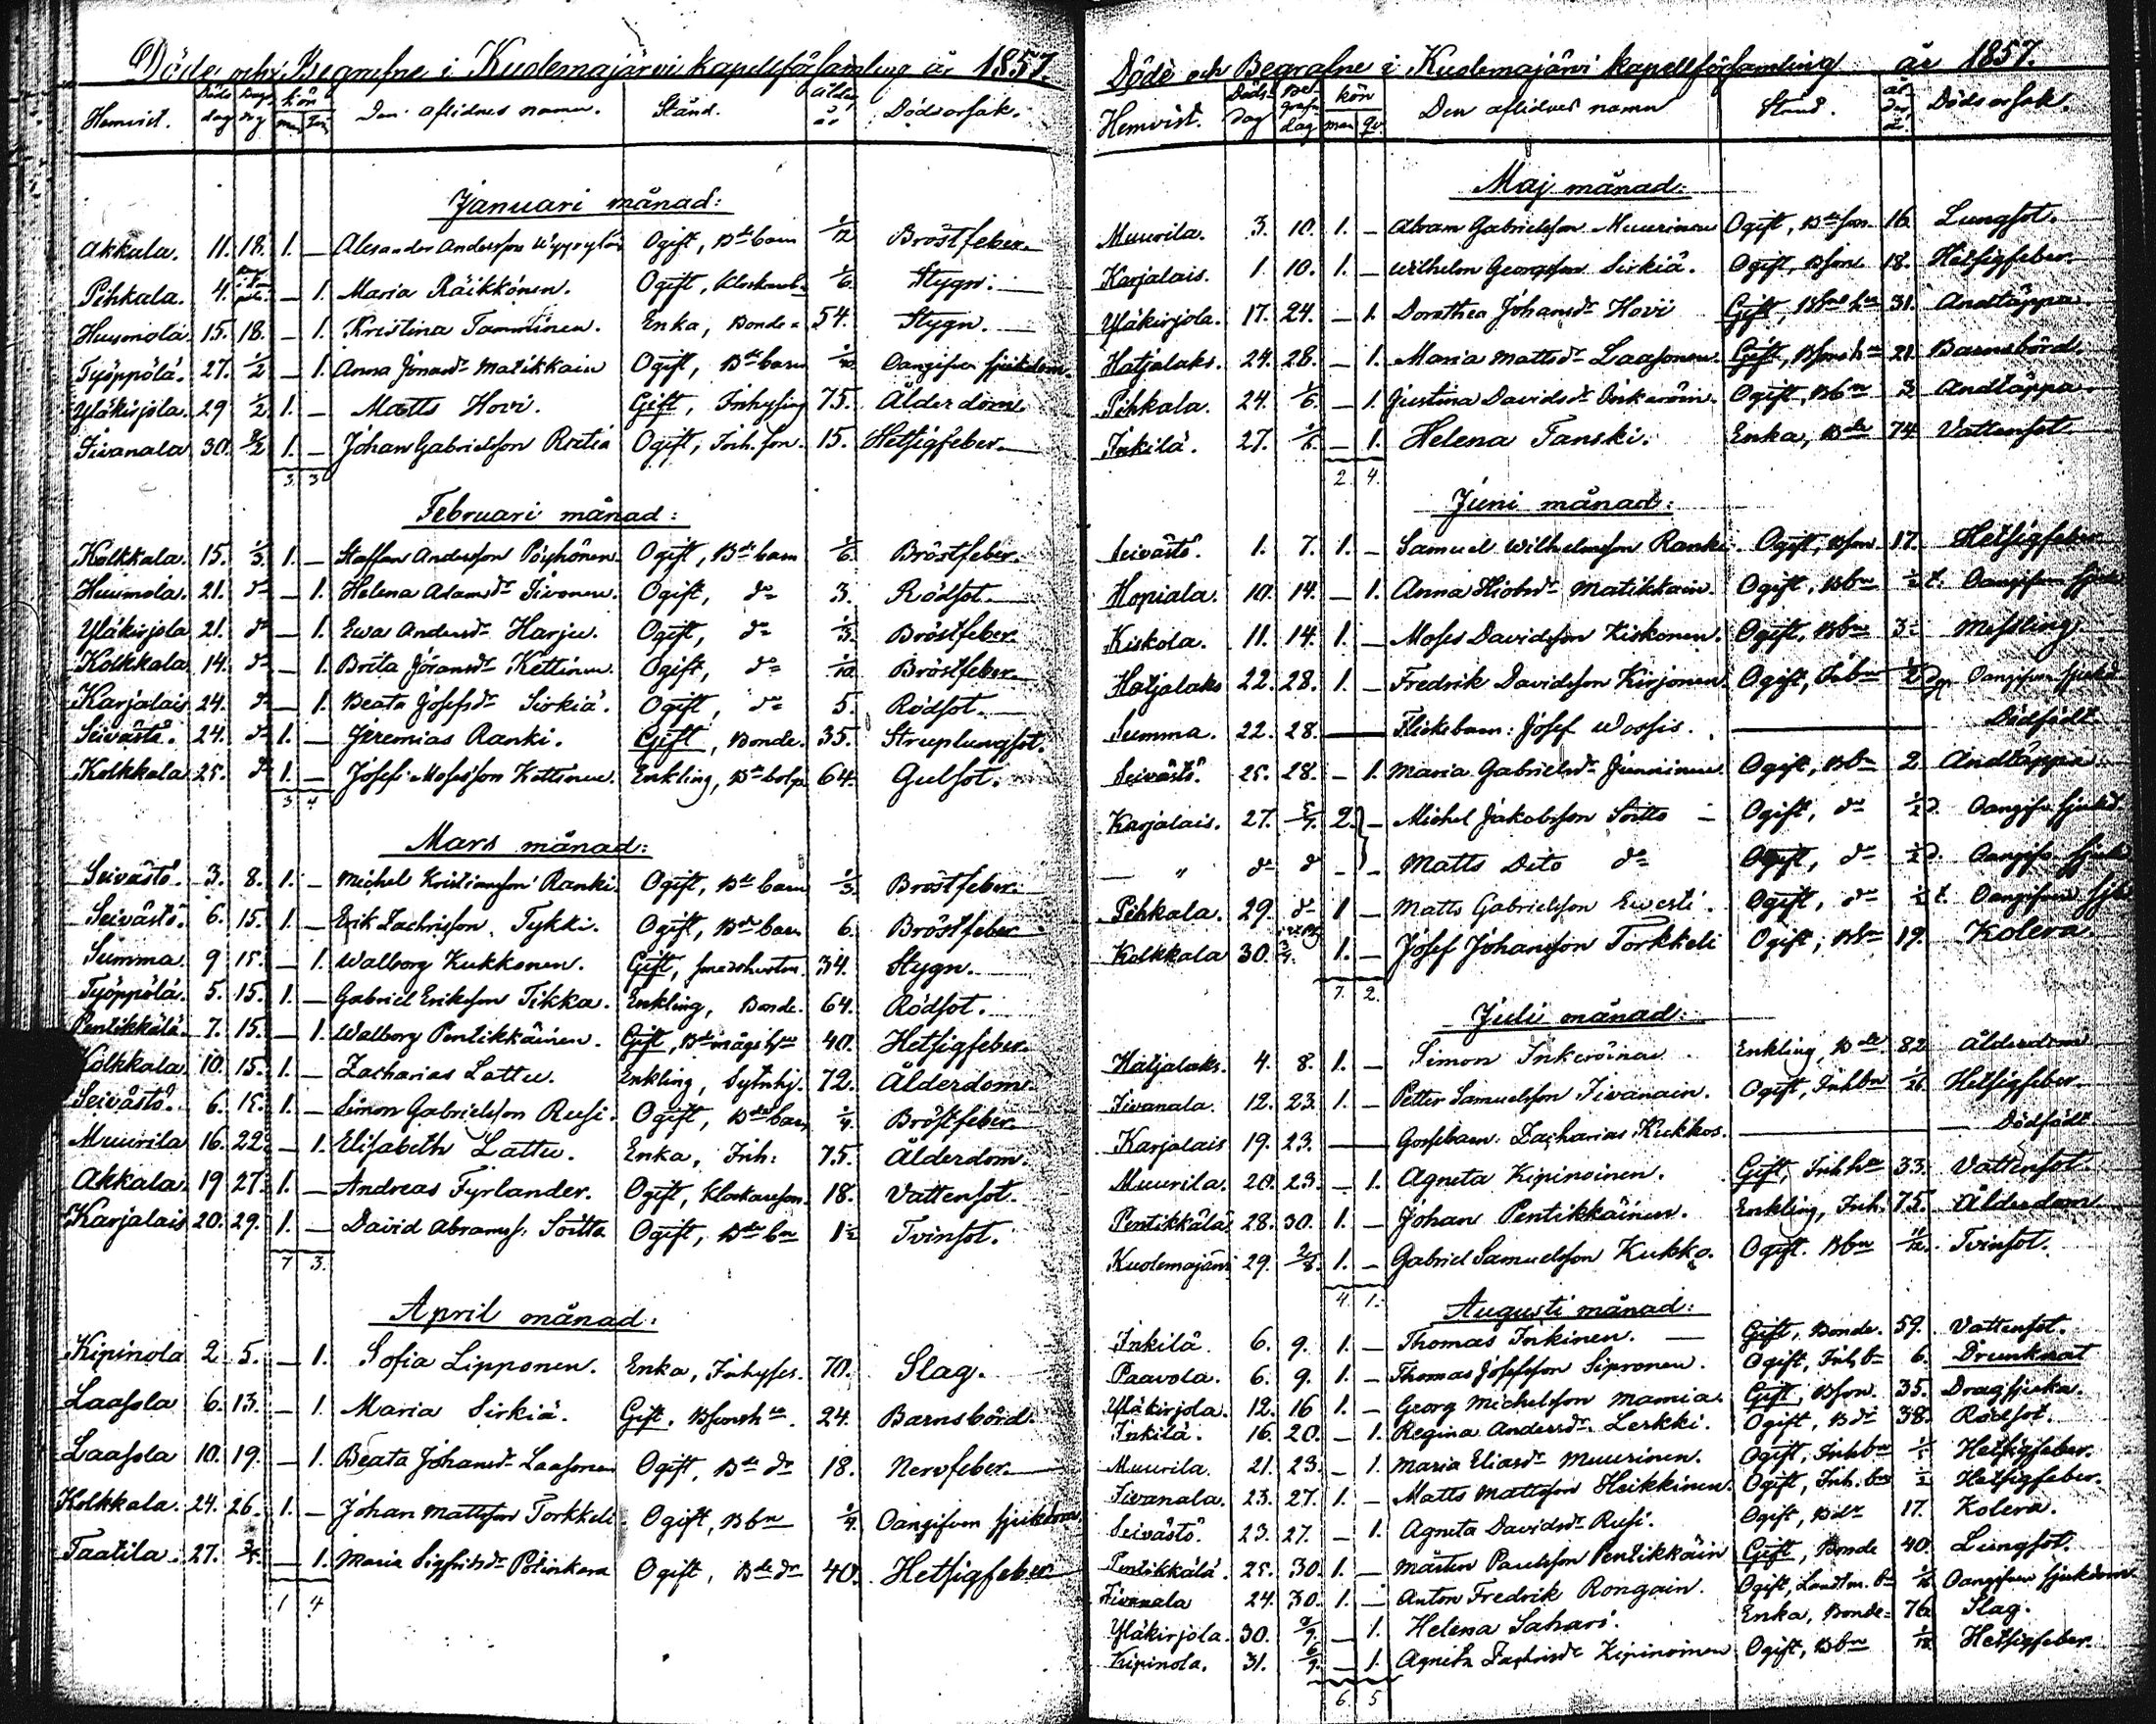 Döde och Begrafne i Kuolemajärvi kapellförsamling år 1857.
Hemvist. Döds dag Beg. dag kön man Den aflidnes namn. Stånd. ålder år Dödsorsak.
Januari månad:
Akkala. 11. 18. 1. — Alexander Andersson Ogift, Bde barn 1/12 Bröstfeber.
Pihkala. 4. — 1. Maria Räikkönen. Ogift, 1/6 Stygn.
Huumola. 15. 18. — 1. Kristina Tammtinen. Enka, Bonde= 54. Stygn.
Työppölä. 27. 1/2 — 1. Anna Jonasdr Matikkain Ogift, Bde barn Oangifven sjukdom.
Yläkirjola. 29 1/2 1. — Matts Hovi. Gift, Inhysing 75. Ålderdom.
Iivanala 30. 8/2 1. — Johan Gabrielsson Ratia Ogift, Inh. son. 15. Hetsigfeber.
3. 3
Februari månad:
Kolkkala. 15. 1/3 1. — Staffan Andersson Pöyhönen. Ogift, Bde barn 1/6. Bröstfeber.
Huumola. 21. do — 1. Helena Adamsdr Iivonen. Ogift, do 3. Rödsot.
Yläkirjola 21. do — 1. Ewa Andersdr Harju. Ogift, do 1/3. Bröstfeber.
Kolkkala 14. do — 1. Brita Göransdr Kettinen. Ogift, do 1/10 Bröstfeber.
Karjalais 24. do — 1. Beata Josefsdr Sirkiä. Ogift, do 5. Rödsot.
Seivästö. 24. do 1. — Jeremias Ranki. Gift, Bonde. 35. Struplungsot.
Kolkkala 25. do 1. — Josef Mosesson Kettinen. Enkling, Bde 64. Gulsot.
3 4
Mars månad:
Seivästö. 3. 8. 1. — Michel Kristiansson Ranki. Ogift, Bde barn 1/3. Bröstfeber.
Seivästö. 6. 15. 1. — Erik Zachrisson Tykki. Ogift, Bde barn 6. Bröstfeber
Summa. 9 15. — 1. Walborg Kukkonen. Gift, smedshustru. 34. Stygn.
Työppölä. 5. 15. 1. — Gabriel Eriksson Tikka. Enkling, Bonde. 64. Rödsot.
Pentikkälä. 7. 15. — 1. Walborg Pentikkäinen. Gift, Bde mågs hu 40. Hetsigfeber.
Kolkkala 10. 15. 1. — Zacharias Lattu. Enkling, Sytnhj. 72. Ålderdom.
Seivästö. 6. 15. 1. — Simon Gabrielsson Rusi. Ogift, Bde barn 1/4. Bröstfeber.
Muurila 16. 22. — 1. Elisabeth Lattu. Enka, Inh: 75. Ålderdom.
Akkala 19 27. 1. — Andreas Fyrlander. Ogift, Klockareson. 18. Vattensot.
Karjalais 20. 29. 1. — David Abramss. Soitto Ogift, Bde bn 1 1/2 Tvinsot.
7 3.
April månad:
Kipinola 2 5. — 1. Sofia Lipponen. Enka, Inhyses. 70. Slag.
Laasola 6. 13. — 1. Maria Sirkiä. Gift. Bsonhu. 24. Barnsbörd.
Laasola 10. 19. — 1. Beata Johansdr Laasonen Ogift, Bde dr 18. Nervfeber.
Kolkkala. 24. 26. 1. — Johan Mattsson Torkkeli. Ogift, Bbn 1/4. Oangifven sjukdom
Taatila. 27. 3/5. — 1. Maria Sigfridsdr Pölinkara Ogift, Bde dr 40. Hetsigfeber
1 4
Döde och Begrafne i Kuolemajärvi kapellförsamling år 1857.
Hemvist. Döds- dag Be- grafn dag kön man qv Den aflidnes namn Stånd. ål- der år. Dödsorsak.
Maj månad:
Muurila. 3. 10. 1. — Abram Gabrielsson Muurinen Ogift, Bde son. 16. Lungsot.
Karjalais. 1. 10. 1. — Wilhelm Georgsson Sirkiä. Ogift, Bson 18. Hetsigfeber.
Yläkirjola. 17. 24. — 1. Dorothea Johansdr Hovi Gift, 31. Andtäppa
Hatjalaks. 24. 28. — 1. Maria Mattsdr Laasonen. Gift, Bsons hu 21. Barnsbörd.
Pihkala. 24. 1/6. — 1. Justina Davidsdr Inkeröin. Ogift, Bbn 3 Andtäppa
Inkilä. 27. 1/6. — 1. Helena Tanski. Enka, Bde 74 Vattensot
2 4.
Juni månad:
Seivästö. 1. 7. 1. — Samuel Wilhelmsson Ranki. Ogift, Bson. 17. Hetsigfeber
Hopiala. 10. 14. — 1. Anna Hiobsdr Matikkain. Ogift, Bbn 1/2 t. Oangifven sjukd
Kiskola. 11. 14. 1. — Moses Davidsson Kiskonen. Ogift, Bbn 3. Messling
Hatjalaks 22. 28. 1. — Fredrik Davidsson Kirjonen. Ogift, Inbn 1/2 Oangifven sjukd
Summa. 22. 28. — Flickebarn: Josef Wossis. — Dödfödt.
Seivästö. 25. 28. — 1. Maria Gabrielsdr Junninen. Ogift, Bbn 2. Andtäppa
Karjalais. 27. 5/7. 2. — Michel Jakobsson Soitto — Ogift, do 1/2 d. Oangifn sjukd
— " do do — — Matts Dito do Ogift, do 1/2 d. Oangifn sjukd
Pihkala. 29. do 1 — Matts Gabrielsson Ewesti. Ogift, do 1/2 t. Oangifven sjukd
Kolkkala 30. 1. — Josef Johansson Torkkeli Ogift, Bsn 19. Kolera.
7. 2.
Juli månad:
Hatjalaks. 4. 8. 1. — Simon Inkeröinen. Enkling, Bde. 82 Ålderdom
Iivanala. 12. 23. 1. — Petter Samuelsson Iivanain. Ogift, Inhbn 1/26. Hetsigfeber.
Karjalais 19. 23. — Gossebarn: Zacharias Kukkos. — Dödfödt.
Muurila. 20. 23. — 1. Agneta Kipinoinen. Gift, Inh. hu 33. Vattensot.
Pentikkälä 28. 30. 1. — Johan Pentikkäinen. Enkling, Inh. 75. Ålderdom
Kuolemajärvi 29. 2/8. 1. — Gabriel Samuelsson Kukko. Ogift. Bbn 11/12. Tvinsot.
4. 1.
Augusti månad:
Inkilä. 6. 9. 1. — Thomas Inkinen. — Gift, Bonde. 59. Vattensot.
Paavola. 6. 9. 1. — Thomas Josefsson Sipronen. Ogift, Inh. bn 6. Drunknat
Yläkirjola. 12. 16 1. — Georg Michelsson Mamia. Gift, Bson. 35. Dragsjuka.
Inkilä. 16. 20. — 1. Regina Andersdr Lerkki. Ogift, Bdr 38. Rödsot.
Muurila. 21. 23. — 1. Maria Eliasdr Muurinen. Ogift, Inhbn Hetsigfeber.
Iivanala. 23. 27. 1. — Matts Mattsson Heikkinen. Ogift, Inh. bn 1/2 Hetsigfeber.
Seivästö. 23. 27. — 1. Agneta Davidsdr Rusi. Ogift, Bdr 17. Kolera.
Pentikkälä. 25. 30. 1. — Mårten Paulsson Pentikkäin Gift, Bonde 40. Lungsot.
Iivanala 24. 30. 1. — Anton Fredrik Rongain. Ogift, Landtm. bn Oangifven sjukdom
Yläkirjola. 30. — 1. Helena Sahari. Enka, Bonde= 76 Slag.
Kipinola. 31. 6/9. — 1. Agneta Zachrisdr Kipinoinen Ogift, Bbn 1/12 Hetsigfeber.
6. 5